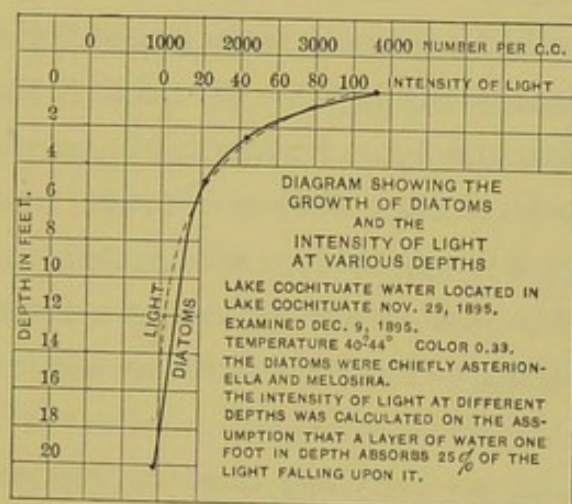 0 1000 2000 3000 4000 NUMBER PER C.C.
0 0 20 40 60 80 100 INTENSITY OF LIGHT
2
4
6
8
10
12
14
16
18
20
DEPTH IN FEET.
LIGHT
DIATOMS
DIAGRAM SHOWING THE
GROWTH OF DIATOMS
AND THE
INTENSITY OF LIGHT
AT VARIOUS DEPTHS
LAKE COCHITUATE WATER LOCATED IN
LAKE COCHITUATE NOV. 29, 1895.
EXAMINED DEC. 9, 1895.
TEMPERATURE 40°-44° COLOR 0.33.
THE DIATOMS WERE CHIEFLY ASTERION-
ELLA AND MELOSIRA.
THE INTENSITY OF LIGHT AT DIFFERENT
DEPTHS WAS CALCULATED ON THE ASS-
UMPTION THAT A LAYER OF WATER ONE
FOOT IN DEPTH ABSORBS 25% OF THE
LIGHT FALLING UPON IT.